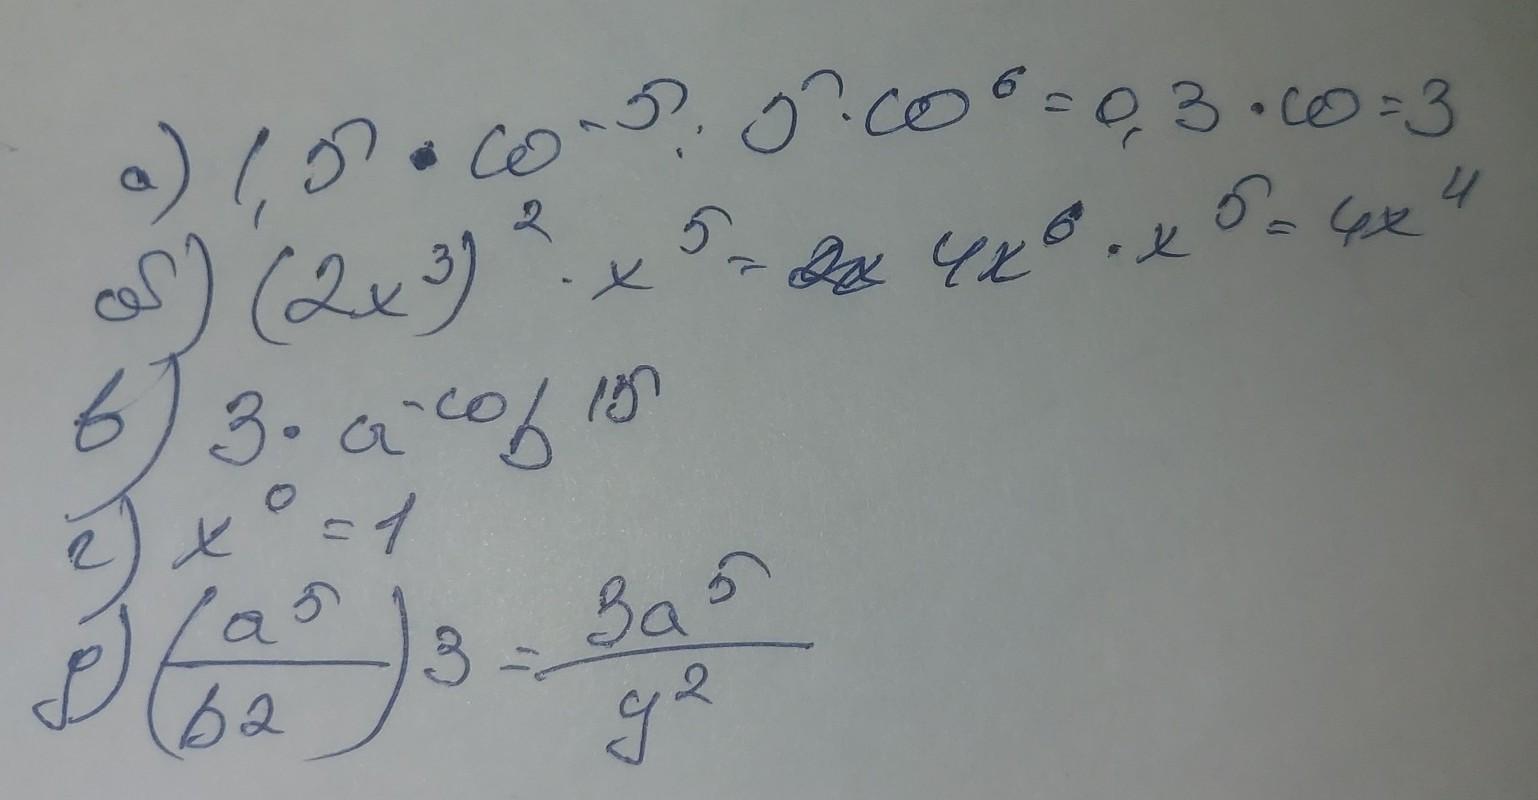 а) 1,5 • 10⁻⁵ : 5 · 10⁶ = 0,3 · 10 = 3
б) (2x³)² · x⁵ = 4x⁶ · x⁵ = 4x⁴
в) 3 · a⁻¹⁰b¹⁵
г) x⁰ = 1
д) (a⁵/b2)3 = 3a⁵/y²